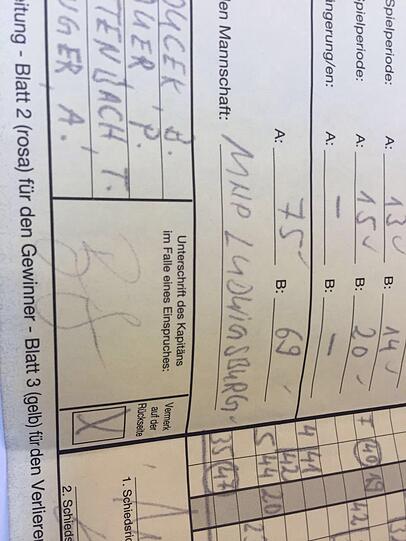 Spielperiode: A: 13 B: 14
Spielperiode: A: 15 B: 20
ngerung/en: A: – B: –
A: 75 B: 69
en Mannschaft: MHP LUDWIGSBURG
UCEK B.
UER, P.
TENBACH T.
UGER, A.
Unterschrift des Kapitäns
im Falle eines Einspruches:
Vermerk
auf der
Rückseite
X
1. Schiedsric
2. Schieds
7 40 19
4 41
42
5 44 20
35 47
eitung - Blatt 2 (rosa) für den Gewinner - Blatt 3 (gelb) für den Verliere